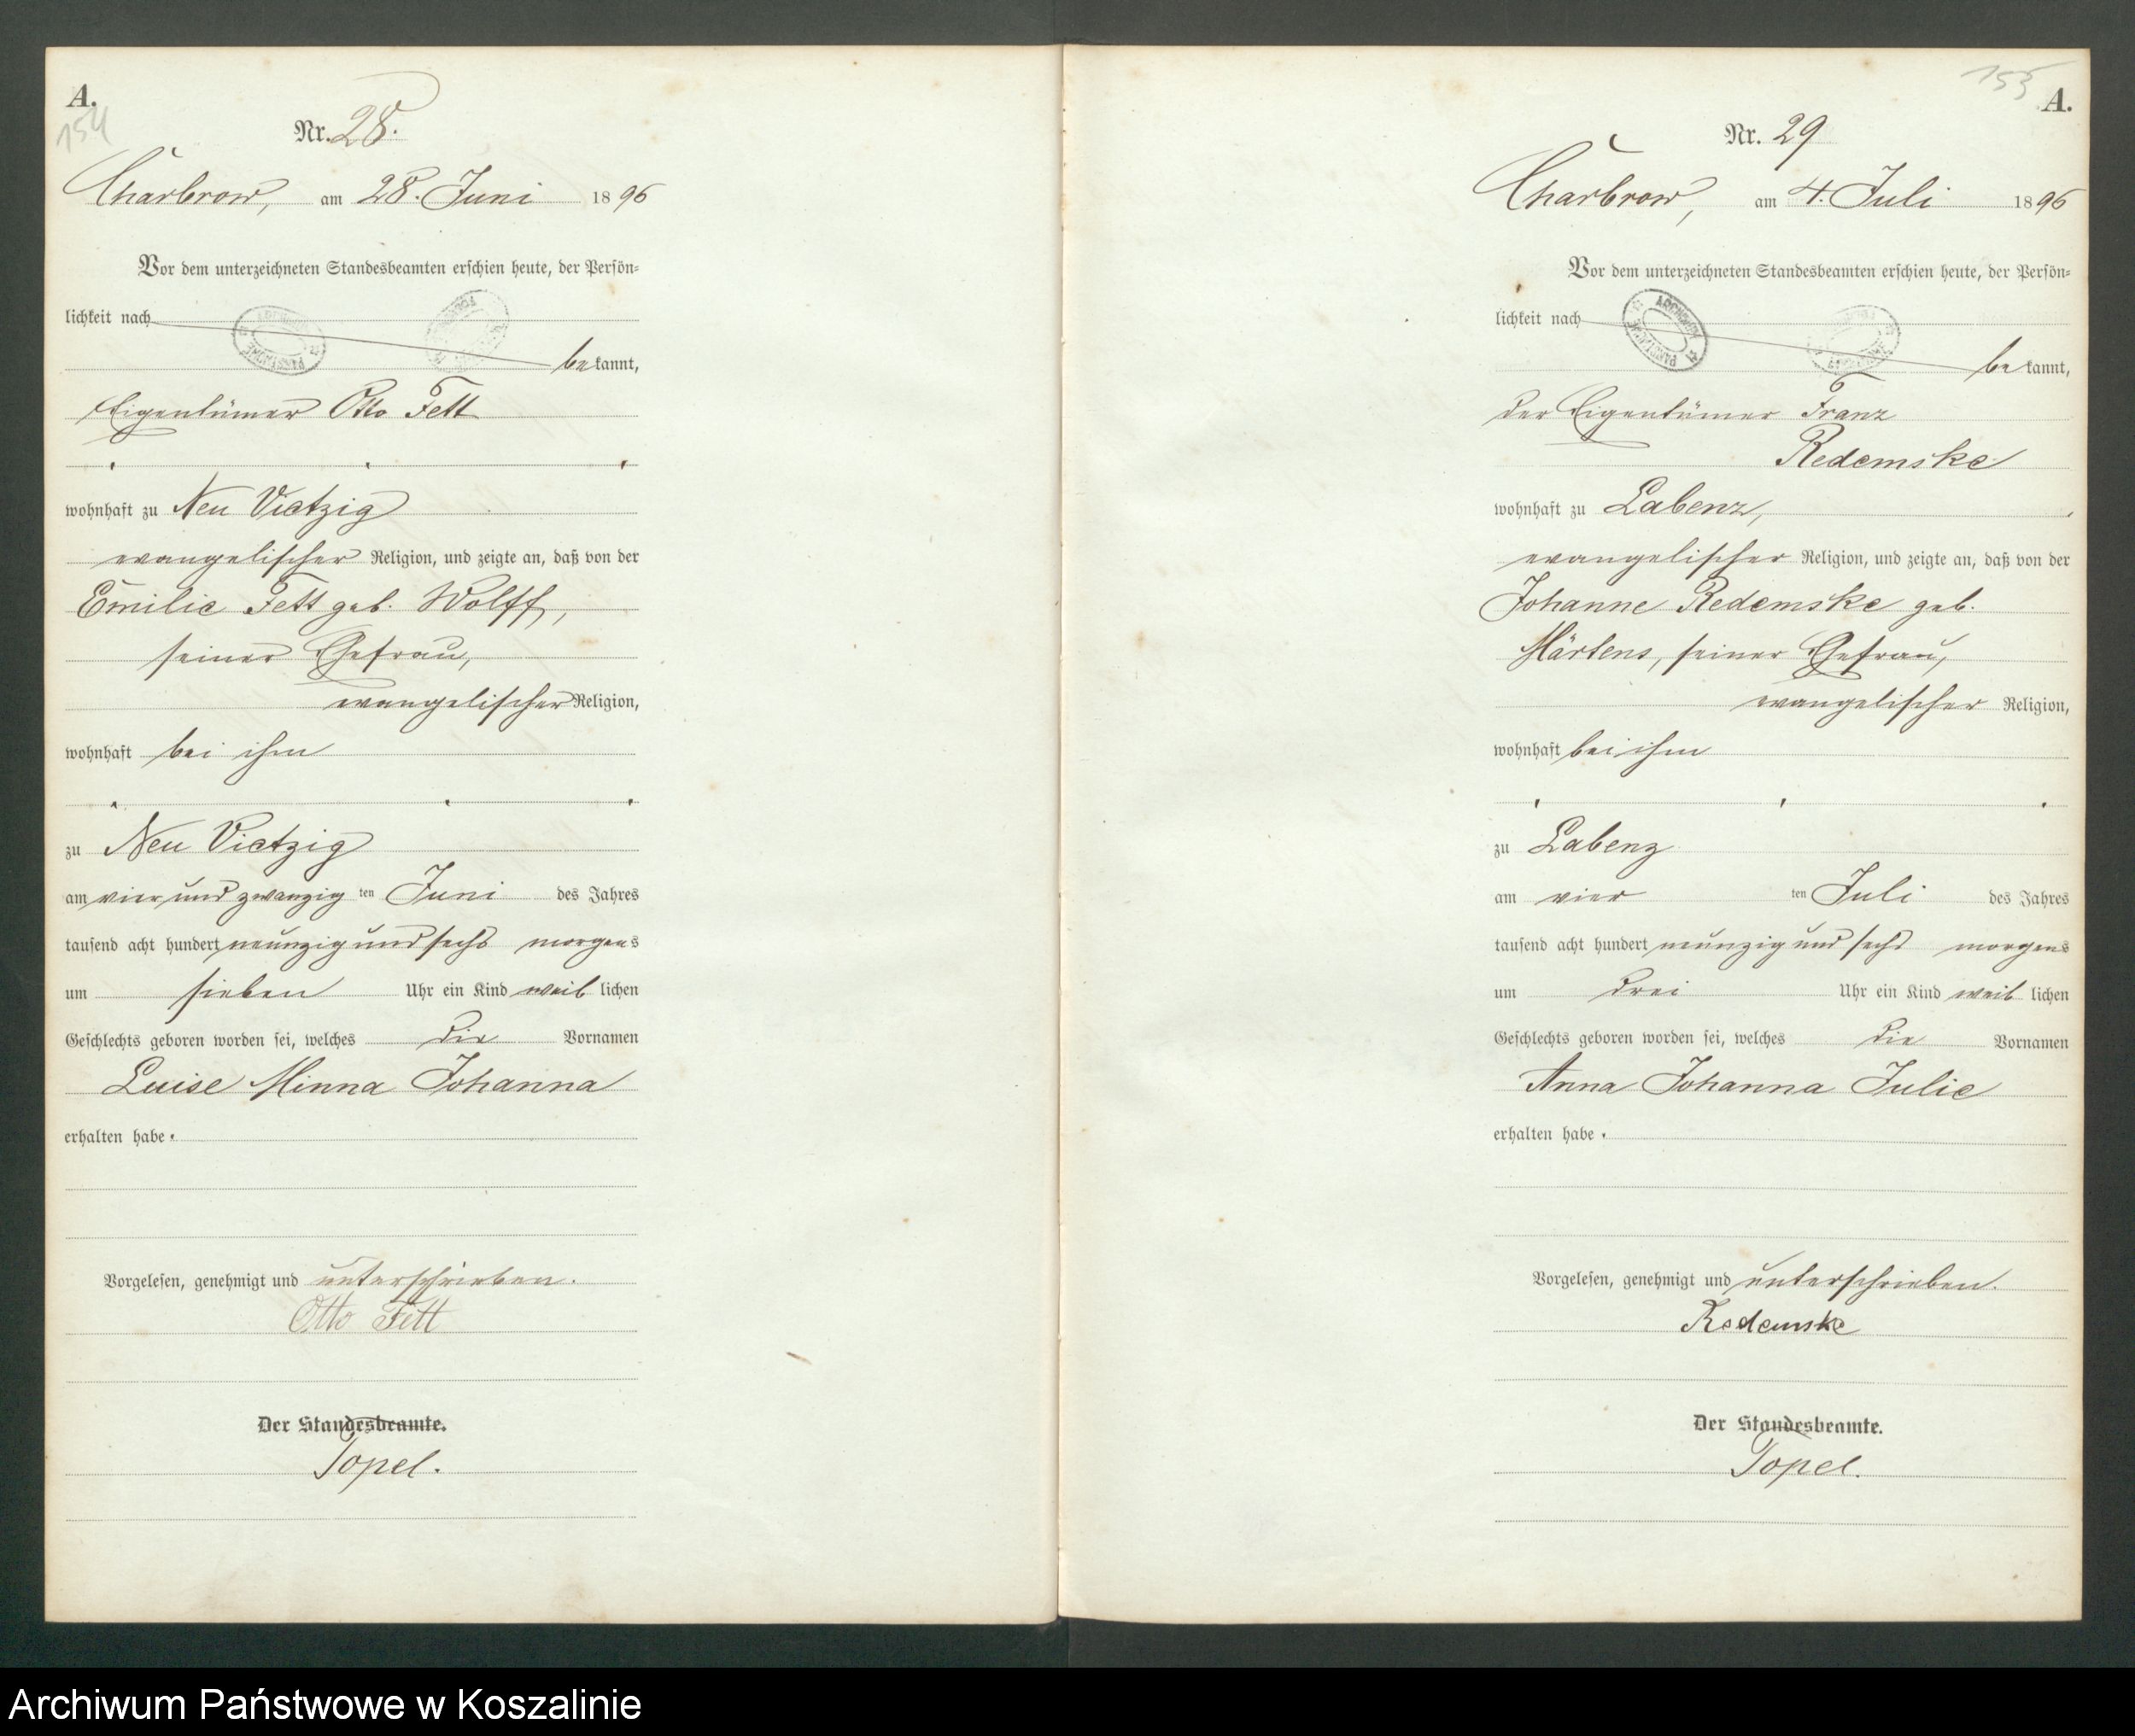 A.
154
Nr. 28.
Charbrow, am 28. Juni 1896
Vor dem unterzeichneten Standesbeamten erschien heute, der Persön-
lichkeit nach
bekannt,
Eigentümer Otto Fett
wohnhaft zu Neu Vietzig
evangelischer Religion, und zeigte an, daß von der
Emilie Fett geb. Wolff,
seiner Ehefrau,
evangelischer Religion,
wohnhaft bei ihm
zu Neu Vietzig
am vier und zwanzig ten Juni des Jahres
tausend acht hundert neunzig und sechs morgens
um sieben Uhr ein Kind weiblichen
Geschlechts geboren worden sei, welches die Vornamen
Luise Minna Johanna
erhalten habe.
Vorgelesen, genehmigt und unterschrieben.
Otto Fett
Der Standesbeamte.
Topel.
155
A.
Nr. 29
Charbrow, am 4. Juli 1896
Vor dem unterzeichneten Standesbeamten erschien heute, der Persön-
lichkeit nach
bekannt,
der Eigentümer Franz
Redemske
wohnhaft zu Labenz,
evangelischer Religion, und zeigte an, daß von der
Johanne Redemske geb.
Märtens, seiner Ehefrau,
evangelischer Religion,
wohnhaft bei ihm
zu Labenz
am vier ten Juli des Jahres
tausend acht hundert neunzig und sechs morgens
um drei Uhr ein Kind weiblichen
Geschlechts geboren worden sei, welches die Vornamen
Anna Johanna Julie
erhalten habe.
Vorgelesen, genehmigt und unterschrieben.
Redemske
Der Standesbeamte.
Topel.
Archiwum Państwowe w Koszalinie